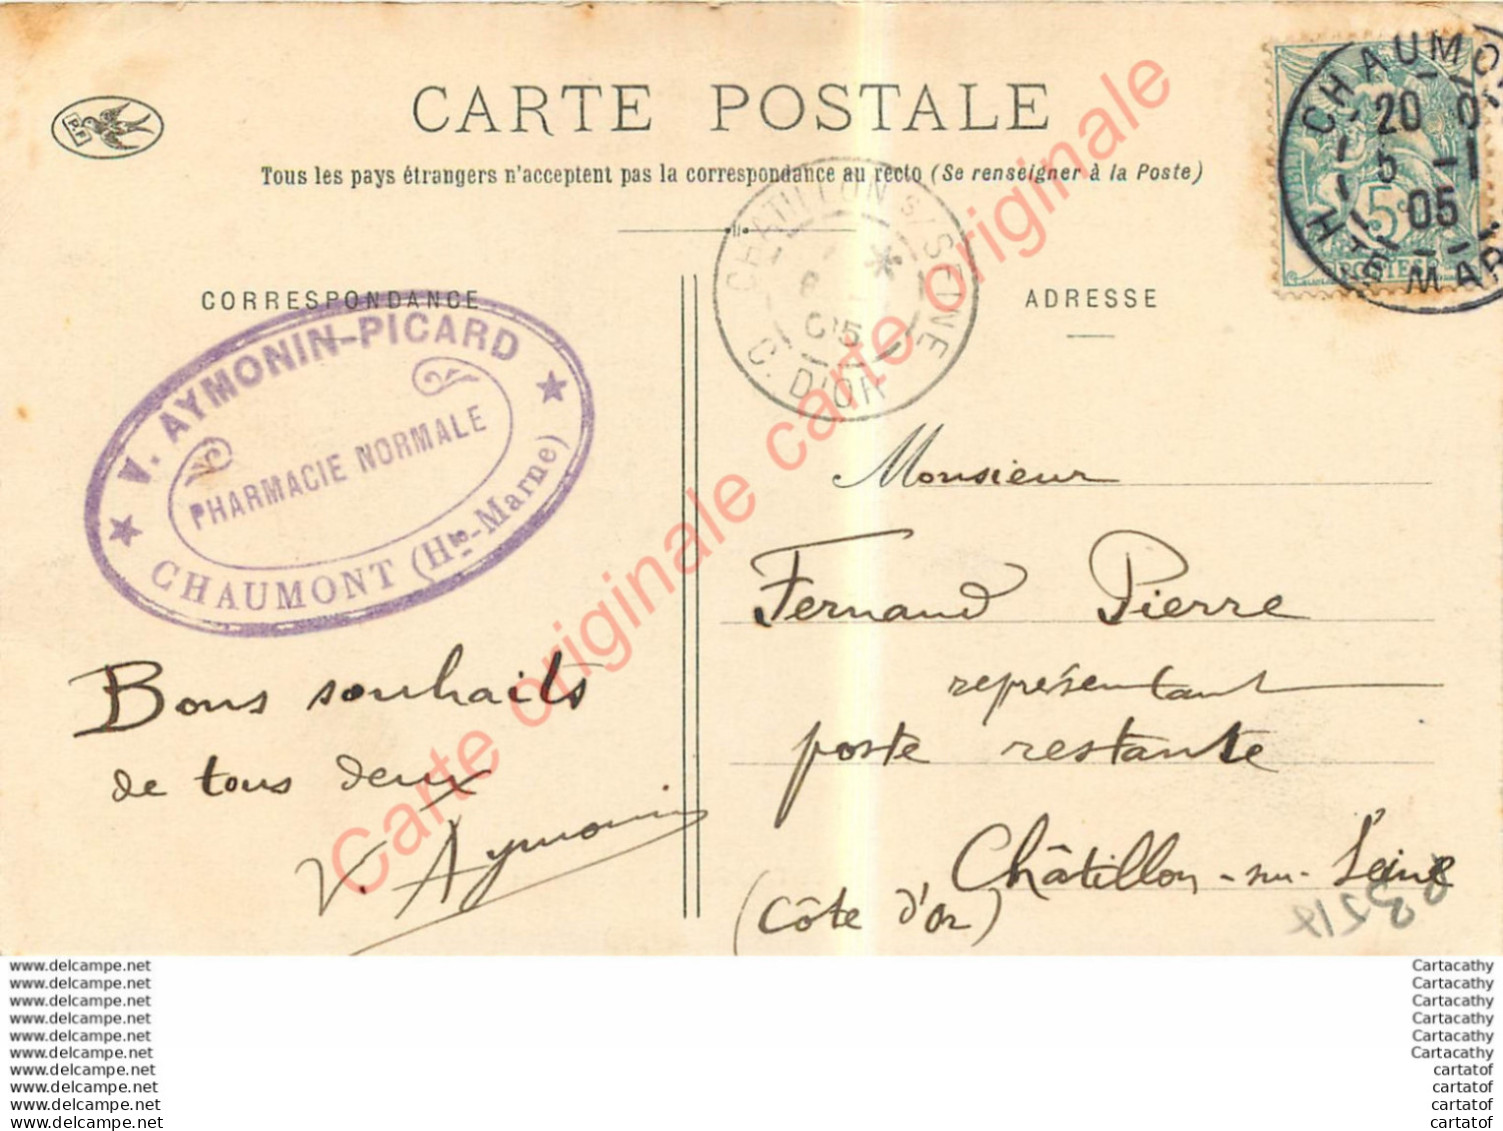 CARTE POSTALE
P.F
Tous les pays étrangers n'acceptent pas la correspondance au recto (Se renseigner à la Poste)
CORRESPONDANCE
V. AYMONIN-PICARD
PHARMACIE NORMALE
CHAUMONT (Hte-Marne)
Bons souhaits
de tous deux
V. Aymonin
CHATILLON S/ SEINE
05
C. D'OR
CHAUMO
20
5 -1
05
HTE MAR
5c
POSTES
ADRESSE
Monsieur
Fernand Pierre
représentant
poste restante
Châtillon-sur-Seine
(Côte d'Or)
Carte originale carte originale
www.delcampe.net
www.delcampe.net
www.delcampe.net
www.delcampe.net
www.delcampe.net
www.delcampe.net
www.delcampe.net
www.delcampe.net
www.delcampe.net
www.delcampe.net
Cartacathy
Cartacathy
Cartacathy
Cartacathy
Cartacathy
Cartacathy
cartatof
cartatof
cartatof
cartatof